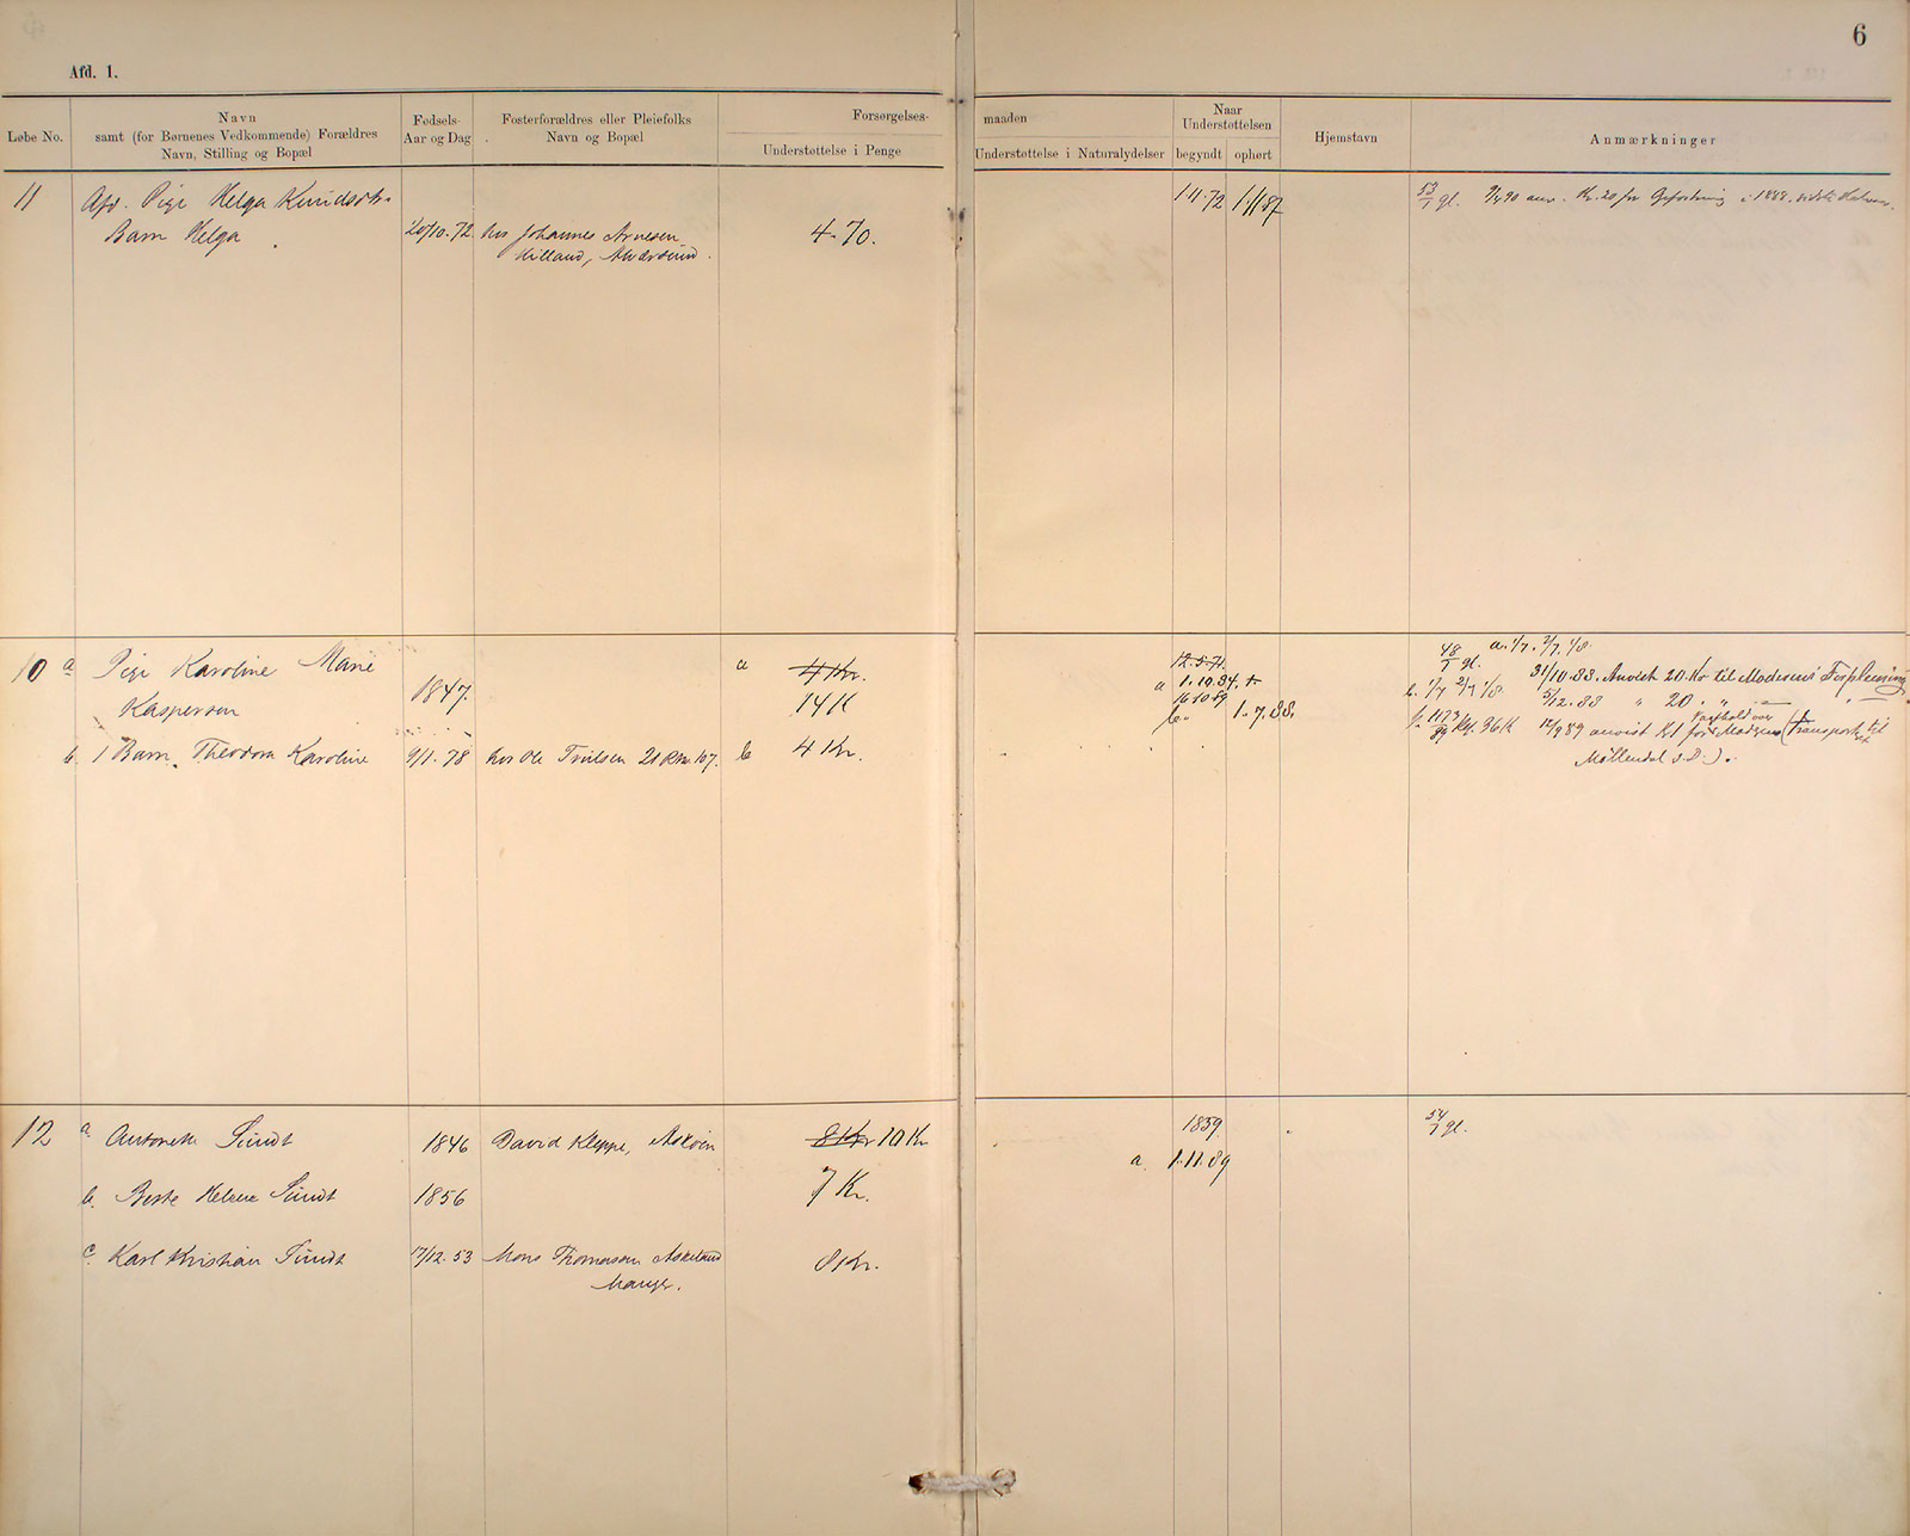 6
Afd. 1.
Løbe No.
Navn
samt (for Børnenes Vedkommende) Forældres
Navn, Stilling og Bopæl
Fødsels-
Aar og Dag
Fosterforældres eller Pleiefolks
Navn og Bopæl
Forsørgelses-
Understøttelse i Penge
maaden
Understøttelse i Naturalydelser
Naar
Understøttelsen
begyndt
ophørt
Hjemstavn
Anmærkninger
11
Afd. Pige Helga Knudsdtr.
Barn Helga
20/10.72
hos Johannes Arnesen
Hilland, Alversund.
4.70.
1.11.72
1/11 87
53/1 gl.
anv. Kr. 20 for
i 1888.
10
a
Pige Karoline Marie
Kaspersen
1847.
a
4 Kr.
14 K
12.5.71.
a 1.10.84.
16.10.89
b.
1.7.88.
48/1 gl.
a. 1/7. 2/7. 1/8
31/10.88. Anvist 20 Kr til Moderens Forpleining
b. 1/7 2/7 1/8.
5/12.88 " 20 " "
12/9 89 anvist Kr for Moderen (Transport til
Møllendal s.D.).
b. 1 Barn. Theodora Karoline
9/1.78
hos Ole Troilsen 21 R. No. 107.
b
4 Kr.
12
a. Antonette Sundt
1846
David Kleppe, Askøen
8 Kr 10 Kr
1859
54/1 gl.
a. 1.11.89
b. Berte Helene Sundt
1856
7 Kr.
c. Karl Kristian Sundt
17/12.53
Mons Thomassen Askeland
Manger.
8 Kr.